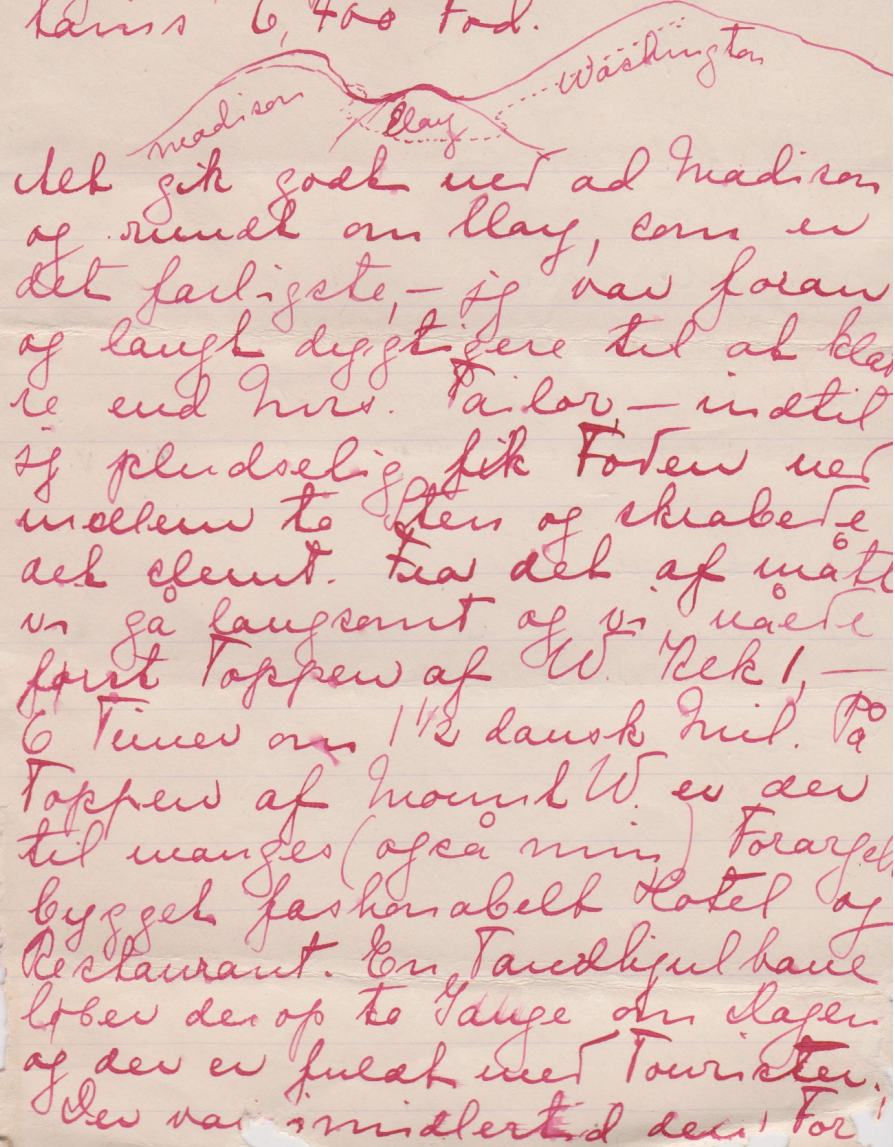 tains 6,400 Fod.
Madison Clay Washington
Alt gik godt ned ad Madison
og rundt om Clay, som er
det farligste, – jeg var foran
og langt dygtigere til at kla
re end Mrs. Tailor – indtil
jeg pludselig fik Foden ned
mellem to Sten og skrabede
det slemt. Fra det af måtte
vi gå langsomt og vi nåede
først Toppen af W. Kek 1, –
6 Timer om 1 1/2 dansk Mil. På
Toppen af Mount W. er der
til manges (også min) Forargel
bygget fashonabelt Hotel og
Restaurant. En Tandhjulbane
løber der op to Gange om Dagen
og der er fuldt med Turister.
Der var imidlertid den For